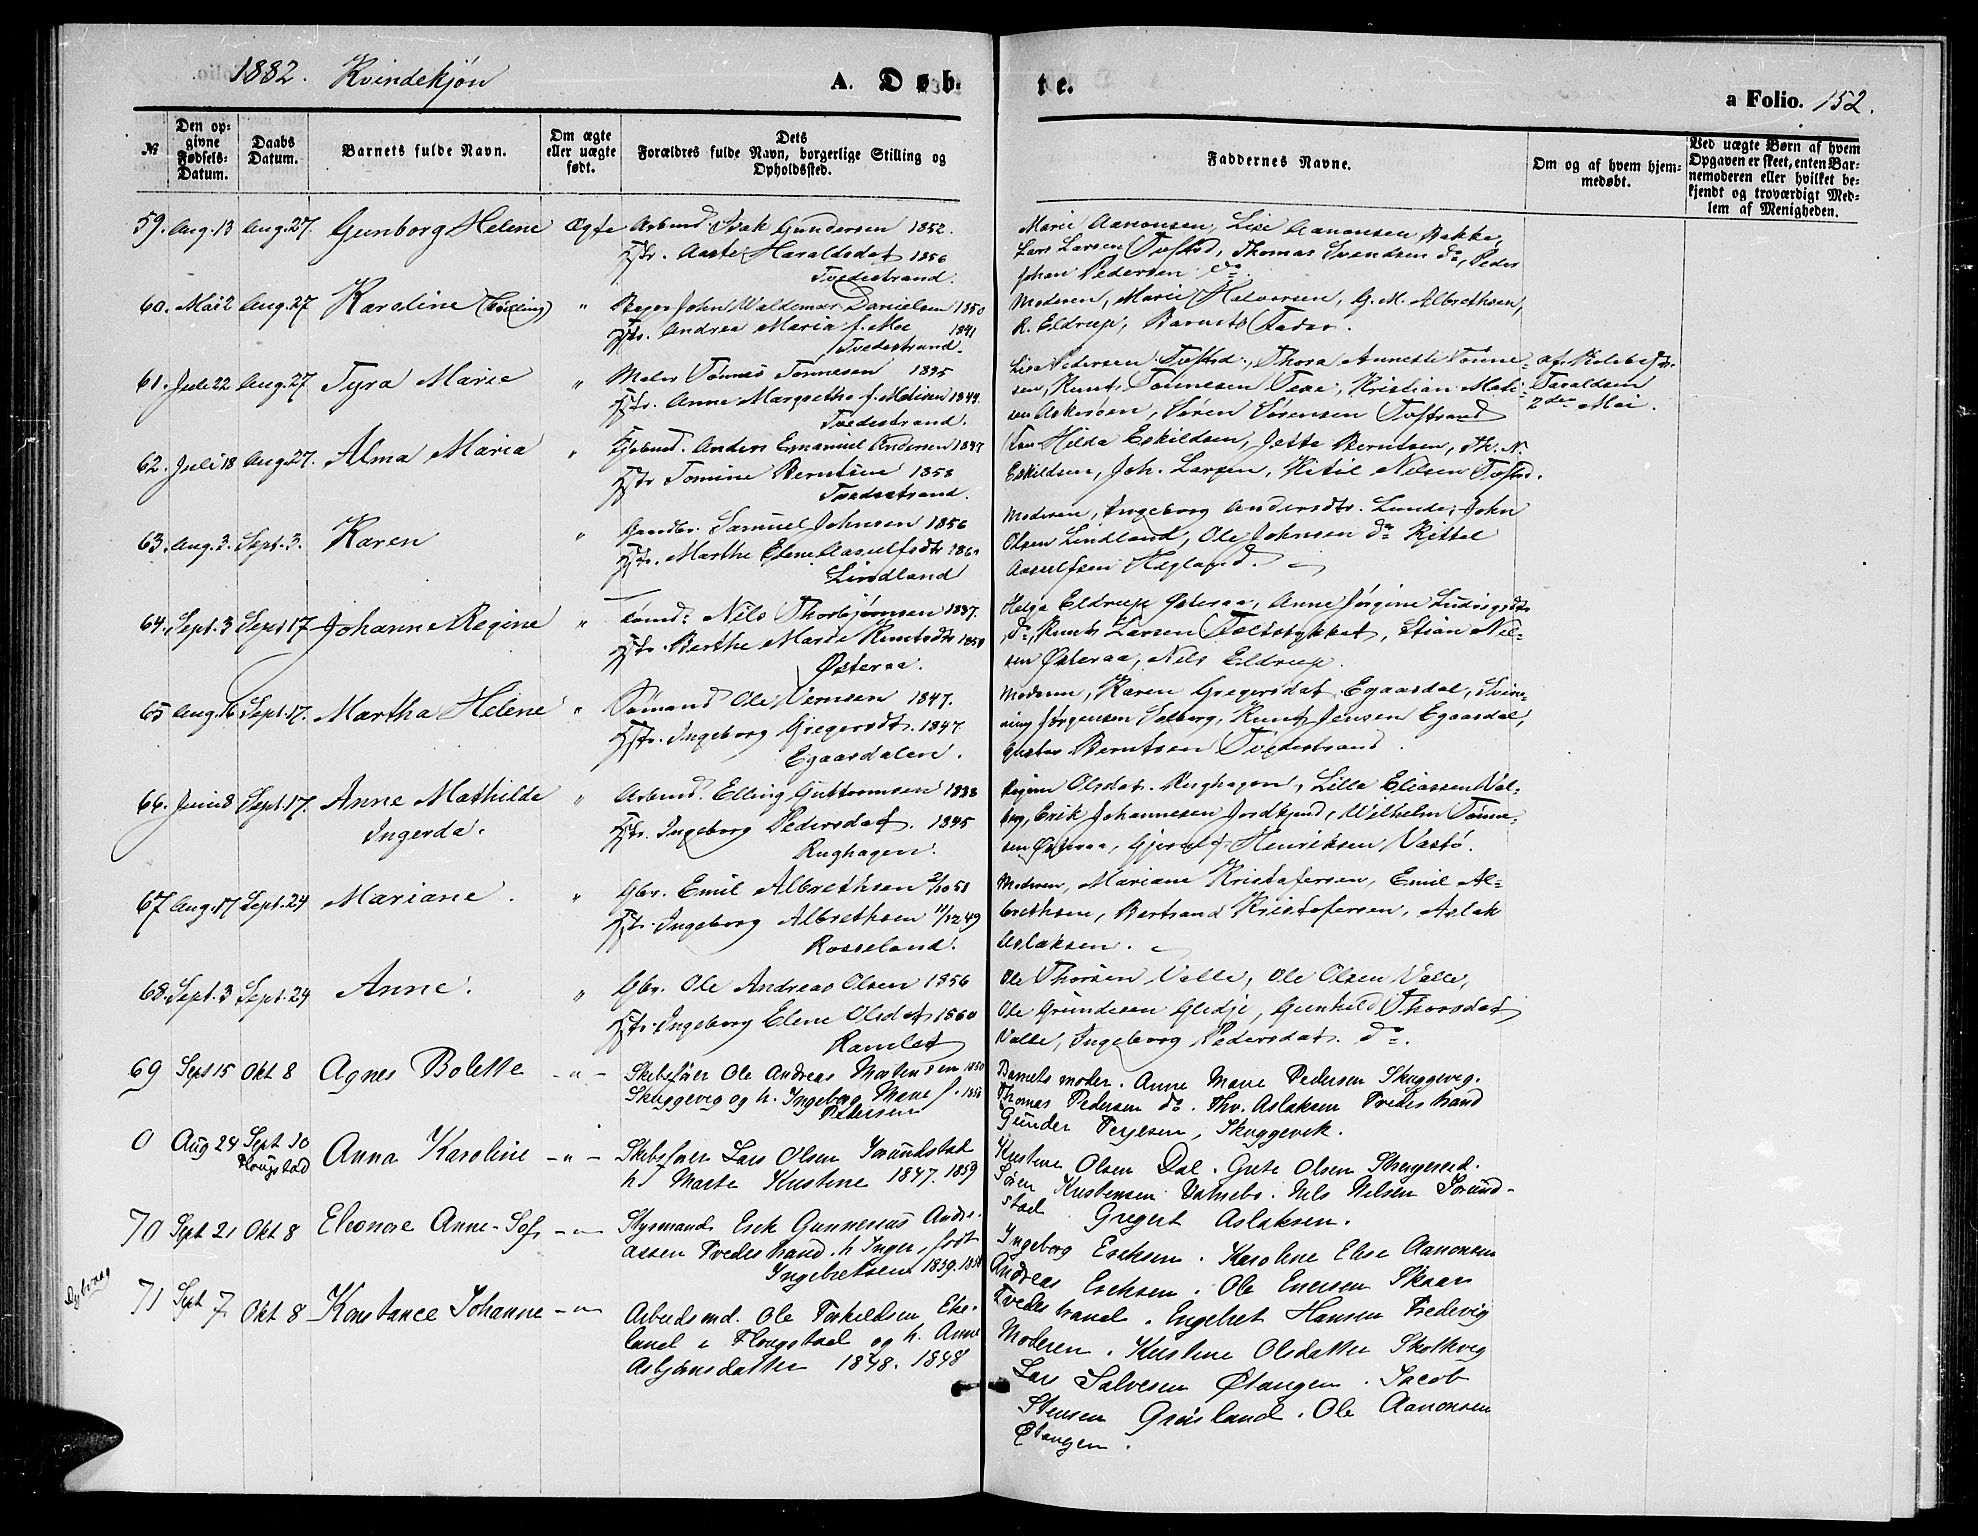 1882. Kvindekjön
A. Døb-
te.
a Folio. 152.
№
Den op-
givne
Fødsels-
Datum.
Daabs
Datum.
Barnets fulde Navn.
Om ægte
eller uægte
født.
Dets
Forældres fulde Navn, borgerlige Stilling og
Opholdssted.
Faddernes Navne.
Om og af hvem hjem-
medøbt.
Ved uægte Børn af hvem
Opgaven er skeet, enten Bar-
nemoderen eller hvilket be-
kjendt og troværdigt Med-
lem af Menigheden.
59. Aug. 13 Aug. 27. Gunborg Helene Ægte
Arbmd Isak Gundersen 1852.
Hstr. Aaste Haraldsdat 1856
Tvedestrand.
Marie Aanonsen, Lise Aanonsen Bakke,
Lars Larsen Tvestrd, Thomas Svendsen do, Peder
Johan Pedersen do.
60. Mai 2 Aug. 27 Karoline (Tvilling) "
John Waldemar Danielsen 1850
Hstr. Andrea Maria f. Moe 1841
Tvedestrand.
Moderen, Marie Halvorsen, G. M. Albrethsen,
R. Eldrup, Barnets Fader.
61. Juli 22 Aug. 27 Tyra Marie "
Maler Tönnes Tönnesen 1835
Hstr. Anne Margrethe f. Madsen 1844.
Tvedestrand.
Lise Pedersen Tvestrd., Thora Annette Tönne-
sen, Knut Tönnesen, Kristian Mati-
sen Askeröen, Sören Sörensen Tvestrand
Taraldsen
2den Mai.
62. Juli 18 Aug. 27. Alma Maria "
Anders Emanuel Andersen 1847
Hstr Tomine Berntsen 1858
Tvedestrand.
Hilda Eskildsen, Jette Berntsen, Th. N.
Eskildsen, Joh. Larsen, Kitil Nilsen Tvestrd.
63. Aug. 2. Sept. 3. Karen "
Gaardbr. Samuel Johnsen 1856
Hstr. Marthe Elene Aasulfsdtr
Lindland
Moderen, Ingeborg Andersdtr. Lunde, John
Olsen Lindland, Ole Johnsen do Kittel
Aasulfsen Hagland.
64. Sept. 3 Sept 17 Johanne Regine "
Sömd: Nils Thorbjörnsen 1837.
Hstr. Berthe Marie Knutsdtr 1850
Østeraa.
Helga Eldrup Østeraa, Anne Jörgine Ludvigsdtr
do, Knut Larsen Töltstykket, Stian Niel-
sen Østeraa, Nils Eldrup.
65 Aug. 16 Sept. 17. Martha Helene "
Sömand Ole Vernsen 1847.
Hstr. Ingeborg Gregersdt. 1847.
Egaasdalen.
Moderen, Karen Gregersdat. Egaasdal, Svin-
ning Jörgensen Solberg, Knut Jensen Egaasdal,
Gustav Berntsen Tvedestrand.
66. Juni 8 Sept. 17. Anne Mathilde "
Ingerda.
Arbmd. Elling Guttormsen 1838
Hstr. Ingeborg Pedersdat. 1845
Rughagen.
Olsdat. Rughagen, Lilla Eliassen Vol-
berg, Erik Johannesen Jordkjend, Wilhelm Tönne-
sen Østeraa, Gjerulf Henriksen Vastö.
67 Aug. 17 Sept. 24 Mariane. "
Gbr. Emil Albrethsen 2/10 51
Hstr. Ingeborg Albrethsen 11/12 49
Rosseland.
Moderen, Mariane Kristofersen, Emil Al-
brethsen, Bertrand Kristofersen, Aslak
Aslaksen.
68. Sept. 3 Sept. 24 Anne. "
Gbr. Ole Andreas Olsen 1856
Hstr. Ingeborg Elene Olsdat 1860
Ramlet
Ole Thorsen Valle, Ole Olsen Valle,
Ole Gundesen Gledje, Gunhild Thorsdat
Valle, Ingeborg Pedersdat. do.
69 Sept 15 Okt 8 Agnes Bolette -"-
Skibsförer Ole Andreas Mortensen 1850
Skuggevig og h. Ingeborg Marie f. 1856
Pedersen
Barnets moder. Anne Marie Pedersen Skuggevig.
Thomas Pedersen do. Thv. Aslaksen Tvedestrand
Gunder Terjesen, Skuggevik.
0 Aug 24 Sept 10 Anna Karoline -"-
Flougstad
Skibsförer Lars Olsen Sörundstad
h Marte Kristene 1847. 1859
Kristene Olsen Dal. Grete Olsen
Sören Kristensen Valneb. Nils Nilsen Sörund-
stad Gregert Aslaksen.
70 Sept 21 Okt 8 Eleonore Anne-Sof. -"-
Styrmand Erik Gunnerius Andre-
assen Tvedestrand. h. Inger, født
Ingebretsen 1859. 1858
Ingeborg Eriksen. Karoline Elise Aanonsen
Andreas Eriksen. Ole Enersen Skaar
Tvedestrand. Engebret Hansen Fredevig
Dybvaag
71 Sept 7 Okt 8 Konstance Johanne -"-
Arbeidsmd. Ole Torkildsen Eke-
land i Flougstad og h. Anne
Asbjönsdatter 1848. 1848
Moderen. Kristine Olsdatter Skotkvig
Lars Salvesen Østangen. Jacob
Stensen Gröisland. Ole Aanonsen
Østangen.